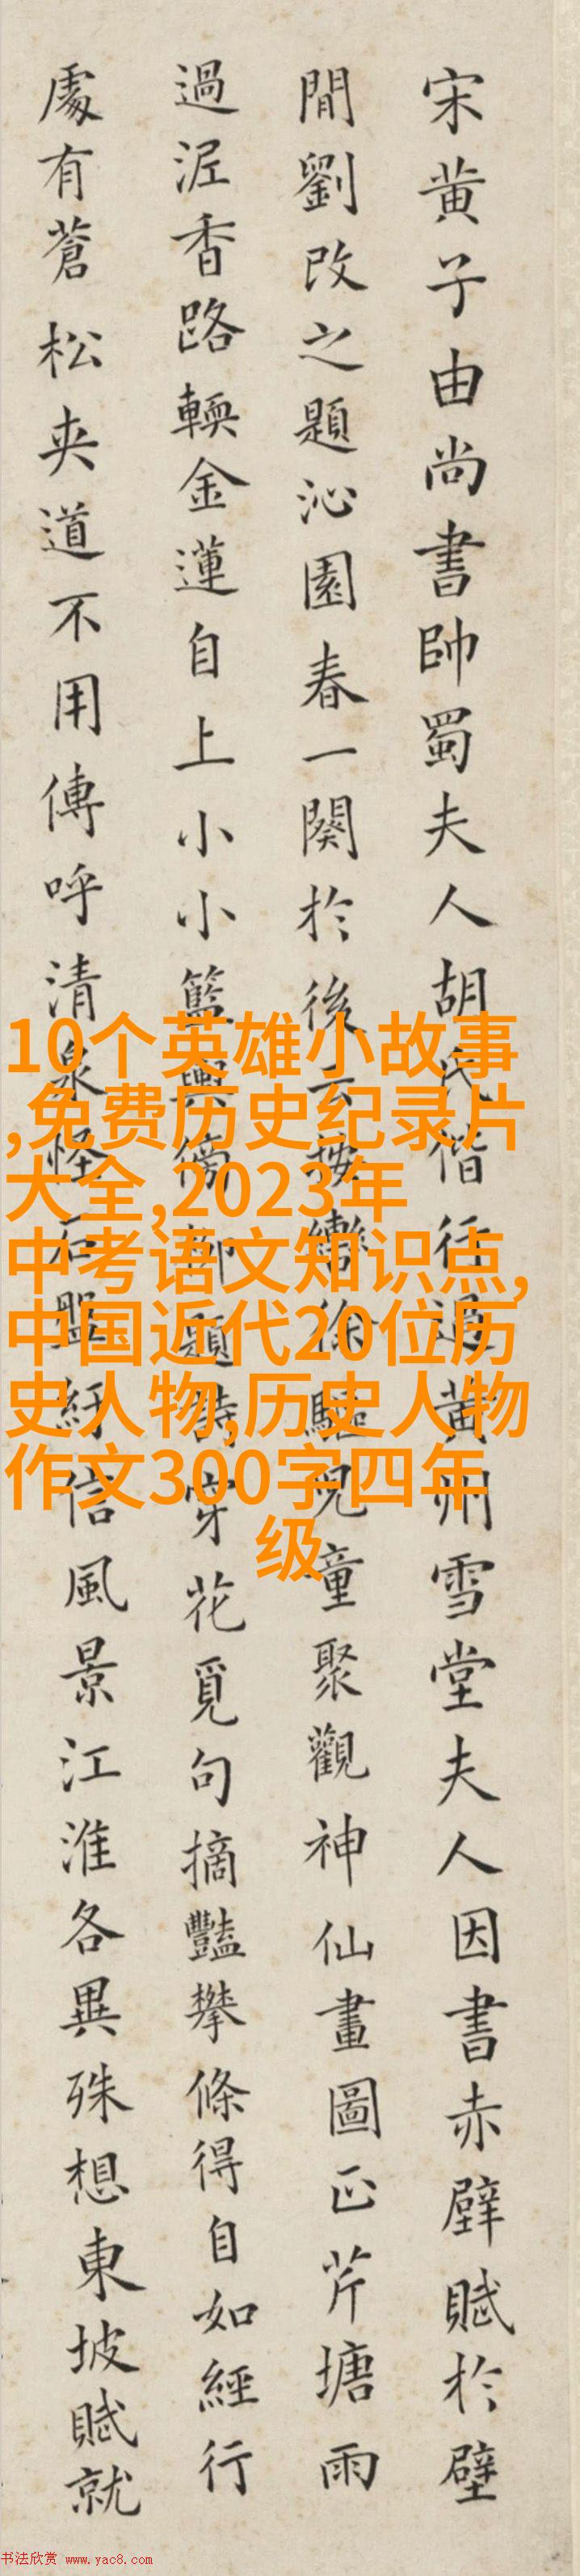 宋黄子由尚書帥蜀夫人胡氏偕行過黄州雪堂夫人因書赤壁賦於壁
間劉改之題沁園春一闋於後云按轡徐驅兒童聚觀神仙畫圖正芹塘雨
過泥香路輭金蓮自上小小籃輿傍柳題詩穿花覓句摘豔攀條得自如經行
處有蒼松夹道不用傳呼清泉怪石盤紆信風景江淮各異殊想東坡賦就
10个英雄小故事
,免费历史纪录片
大全,2023年
中考语文知识点,
中国近代20位历
史人物,历史人物
作文300字四年
级
书法欣赏 www.yac8.com